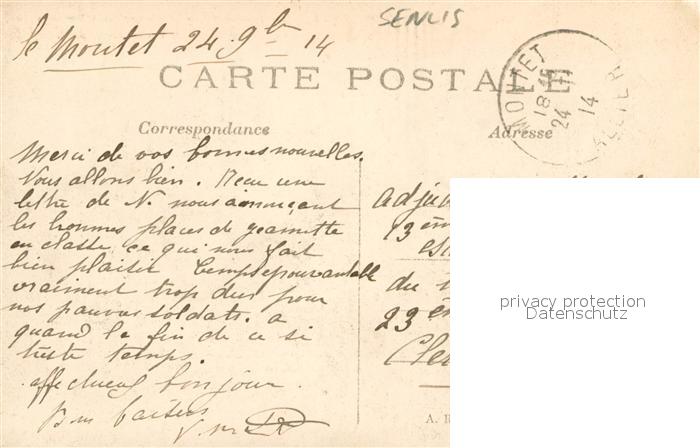 SENLIS
le Montet 24 9b 14
CARTE POSTALE
MONTET
18
24
14
ALLIER
Correspondance
Adresse
Merci de vos bonnes nouvelles.
Vous allons bien. Recu une
lettre de N. nous annonçant
les bonnes places de
en classe, ce qui nous fait
bien plaisir Temps epouvantable
vraiment trop dur pour
nos pauvres soldats. a
quand la fin de ce si
triste temps.
affectueux bonjour
Bons baisers
adju
13 èm
du
23 èm
Cle
A. R
privacy protection
Datenschutz